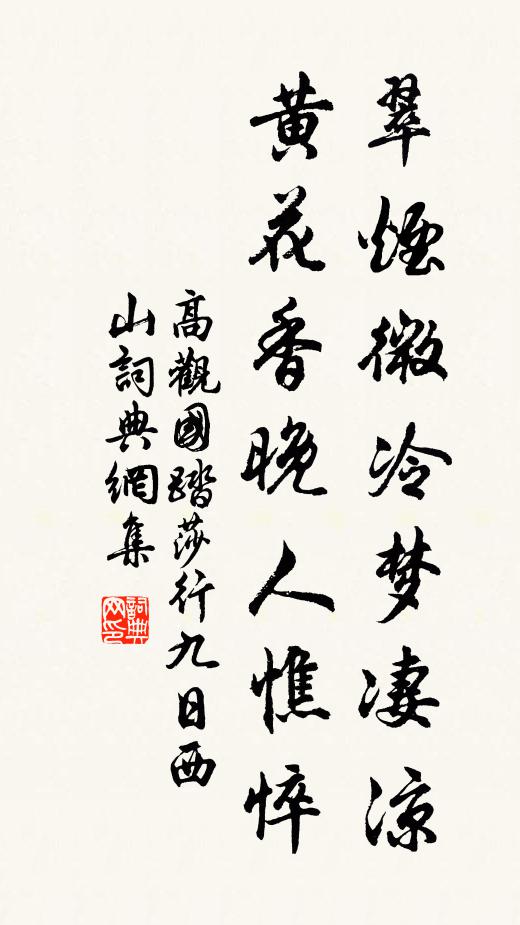 翠煙微冷梦淒涼
黄花香晚人憔悴
高觀國踏莎行九日西
山詞典網集
詞典
网印